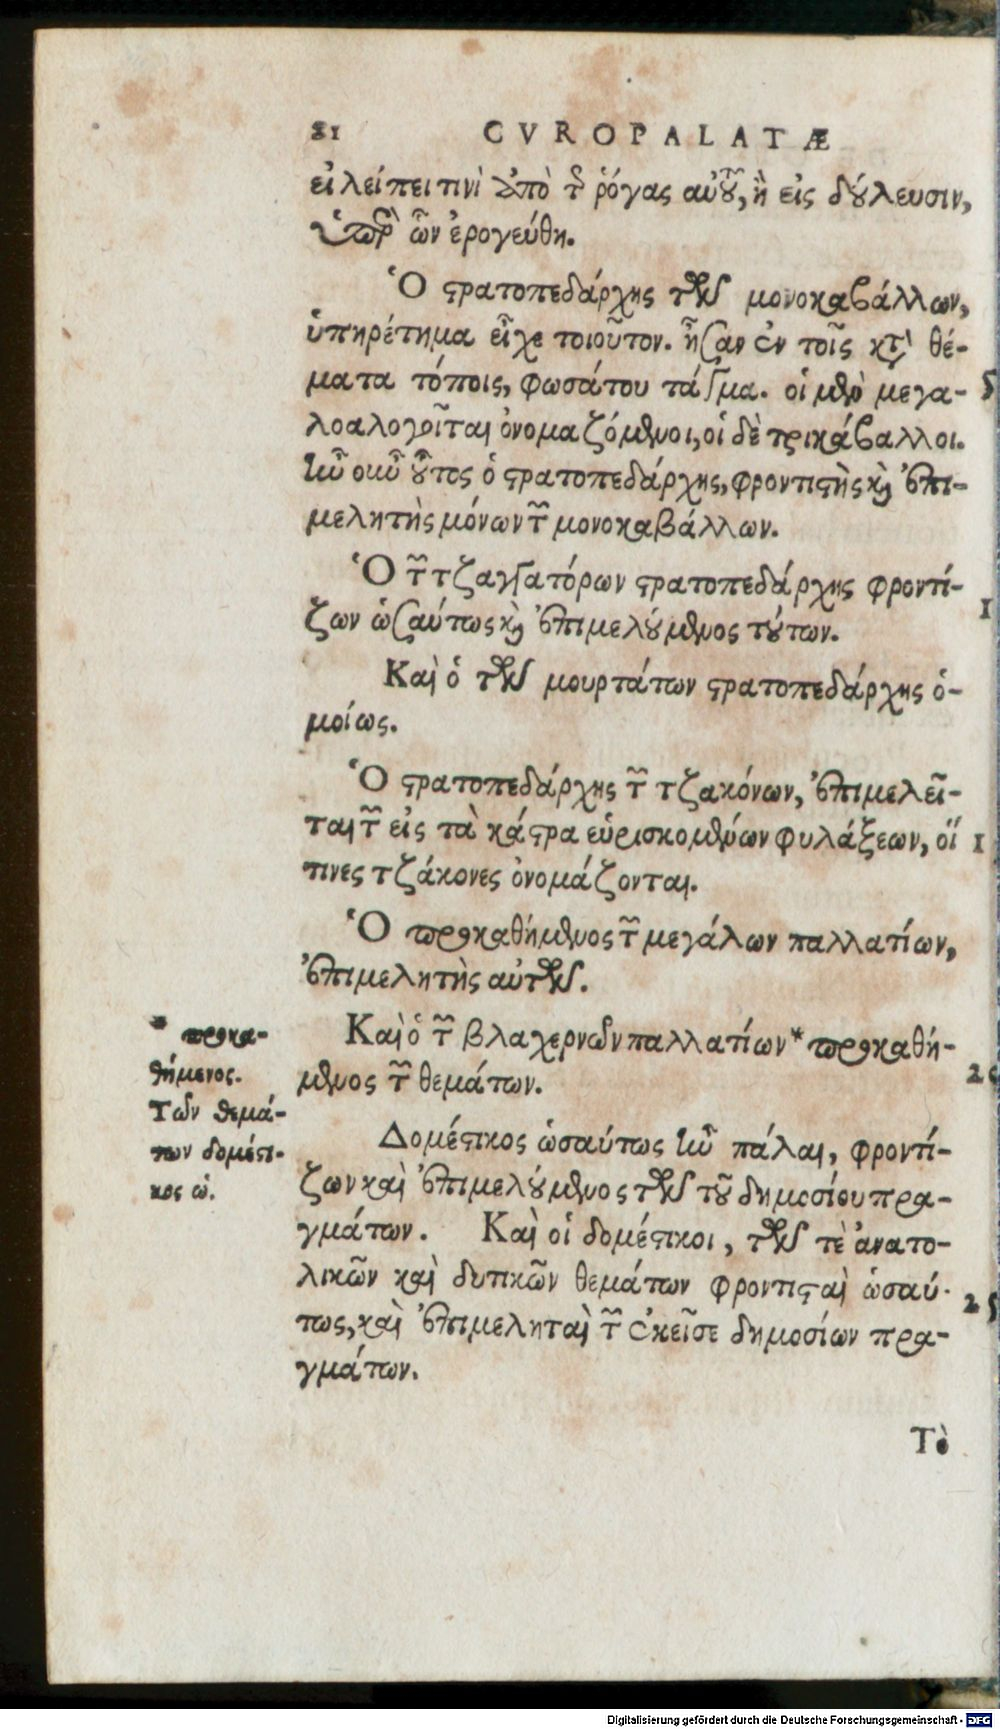 81 CVROPALATÆ
εἰ λείπει τινὶ ἀπὸ τῆς ῥόγας αὐτοῦ, ἢ εἰς δούλευσιν,
ὑπὲρ ὧν ἐρογεύθη.
Ὁ στρατοπεδάρχης τῶν μονοκαβάλλων,
ὑπηρέτημα εἶχε τοιοῦτον. ἦσαν ἐν τοῖς κατὰ θέ-
ματα τόποις, φωσάτου τάγμα. οἱ μὲν μεγα-
λοαλογοῖται ὀνομαζόμενοι, οἱ δὲ τρικάβαλλοι.
ἦν οὖν οὗτος ὁ στρατοπεδάρχης, φροντιστὴς καὶ ἐπι-
μελητὴς μόνων τῶν μονοκαβάλλων.
Ὁ τῶν τζαγγατόρων στρατοπεδάρχης φροντί-
ζων ὡσαύτως καὶ ἐπιμελούμενος τούτων.
Καὶ ὁ τῶν μουρτάτων στρατοπεδάρχης ὁ-
μοίως.
Ὁ στρατοπεδάρχης τῶν τζακόνων, ἐπιμελεῖ-
ται τῶν εἰς τὰ κάστρα εὑρισκομένων φυλάξεων, οἵ
τινες τζάκονες ὀνομάζονται.
Ὁ προκαθήμενος τῶν μεγάλων παλλατίων,
ἐπιμελητὴς αὐτῶν.
Καὶ ὁ τῶν βλαχερνῶν παλλατίων* προκαθή-
μενος τῶν θεμάτων.
Δομέστικος ὡσαύτως ἦν πάλαι, φροντί-
ζων καὶ ἐπιμελούμενος τῶν τοῦ δημοσίου πρα-
γμάτων. Καὶ οἱ δομέστικοι, τῶν τὲ ἀνατο-
λικῶν καὶ δυτικῶν θεμάτων φροντισταὶ ὡσαύ-
τως, καὶ ἐπιμεληταὶ τῶν ἐκεῖσε δημοσίων πρα-
γμάτων.
Τὸ
* προκα-
θήμενος.
Τῶν θεμά-
των δομέστι-
κος ὡ.
Digitalisierung gefördert durch die Deutsche Forschungsgemeinschaft - DFG